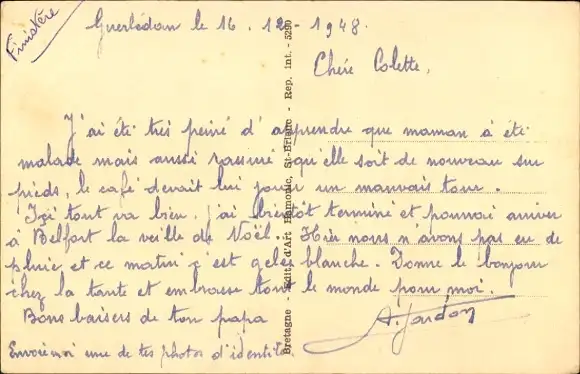 Finistère
Guerlédan le 16.12-1948.
Chère Colette,
J'ai été très peiné d'apprendre que maman a été
malade mais aussi rassuré qu'elle soit de nouveau sur
pieds, le café devait lui jouer un mauvais tour.
Ici tout va bien, j'ai bientôt terminé et pourrai arriver
à Belfort la veille de Noël. Hier nous n'avons pas eu de
pluie et ce matin c'est gelée blanche. Donne le bonjour
chez la tante et embrasse tout le monde pour moi.
Bons baisers de ton papa
A. Jardon
Envoie moi une de tes photos d'identité.
Bretagne - Édit. d'Art Hamonic, St-Brieuc - Rep. int. - 5290